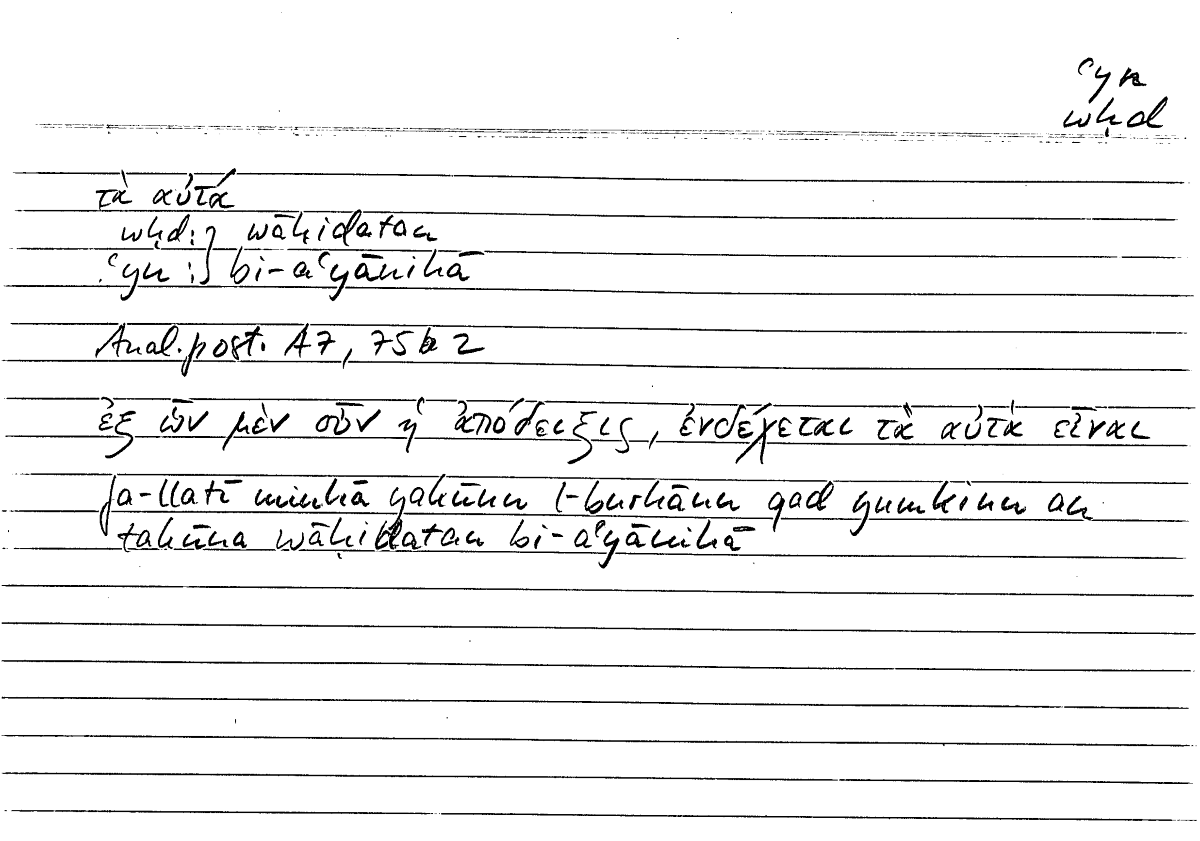 ʿyn
wḥd
τὰ αὐτά
wḥd: } wāḥidatan
ʿyn : } bi-aʿyānihā
Anal. post. A7, 75b2
ἐξ ὧν μὲν οὖν ἡ ἀπόδειξις, ἐνδέχεται τὰ αὐτὰ εἶναι
fa-llatī minhā yakūnu l-burhānu qad yumkinu an
takūna wāḥidatan bi-aʿyānihā